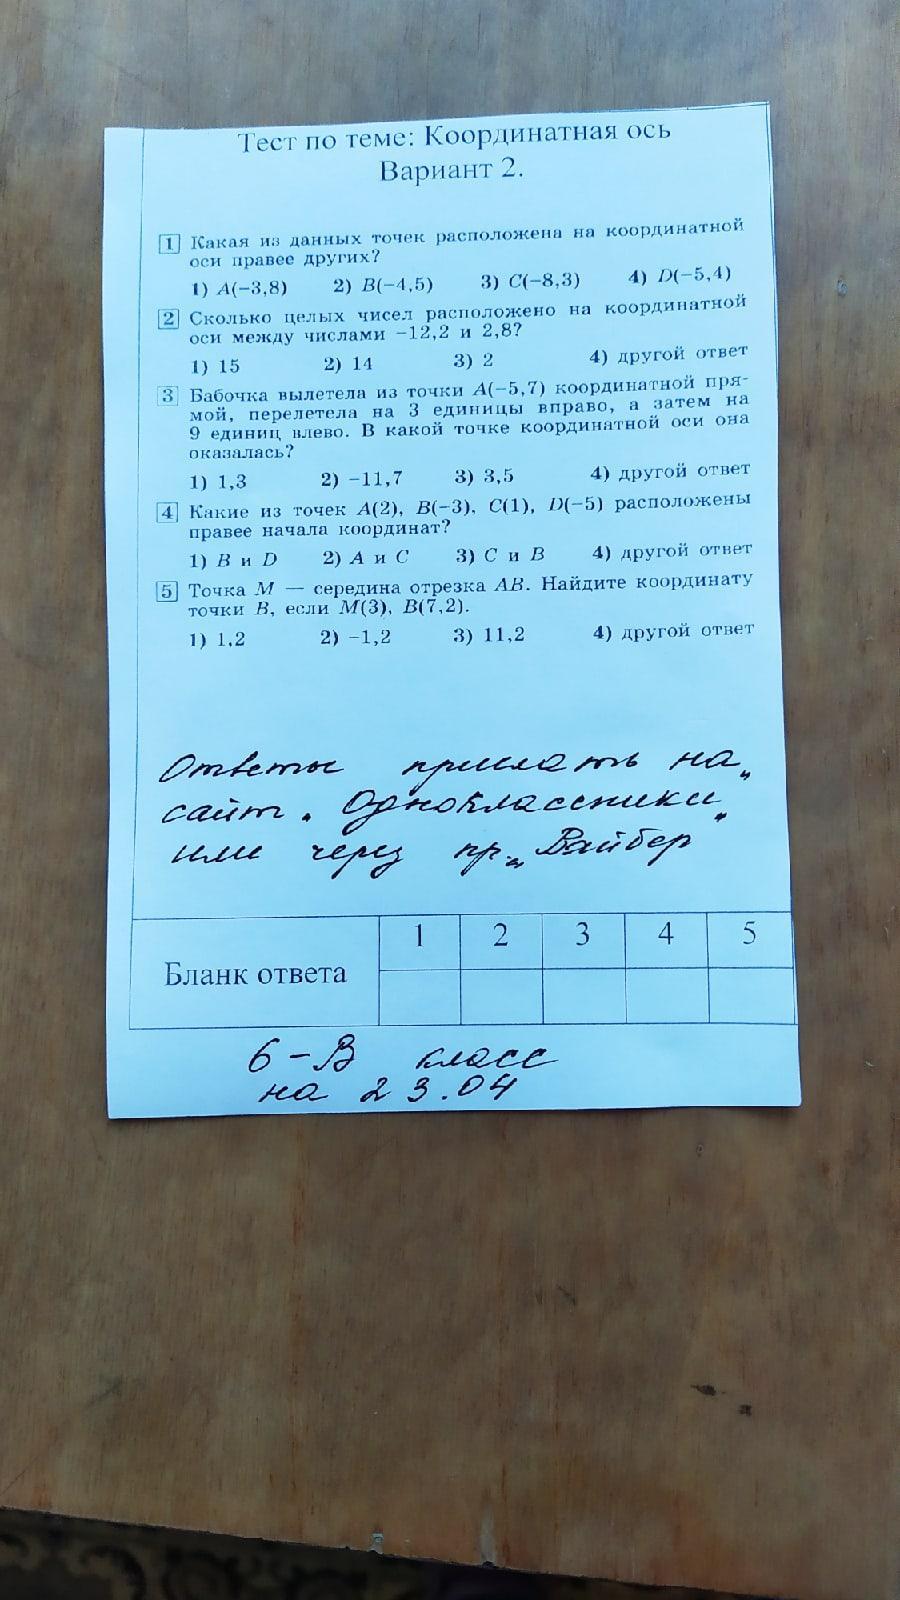 Тест по теме: Координатная ось
Вариант 2.
1 Какая из данных точек расположена на координатной
оси правее других?
1) A(−3,8) 2) B(−4,5) 3) C(−8,3) 4) D(−5,4)
2 Сколько целых чисел расположено на координатной
оси между числами −12,2 и 2,8?
1) 15 2) 14 3) 2 4) другой ответ
3 Бабочка вылетела из точки A(−5,7) координатной пря-
мой, перелетела на 3 единицы вправо, а затем на
9 единиц влево. В какой точке координатной оси она
оказалась?
1) 1,3 2) −11,7 3) 3,5 4) другой ответ
4 Какие из точек A(2), B(−3), C(1), D(−5) расположены
правее начала координат?
1) B и D 2) A и C 3) C и B 4) другой ответ
5 Точка M — середина отрезка AB. Найдите координату
точки B, если M(3), B(7,2).
1) 1,2 2) −1,2 3) 11,2 4) другой ответ
Ответы прислать на
сайт „Одноклассники"
или через пр. „Вайбер"
Бланк ответа 1 2 3 4 5
6-В класс
на 23.04